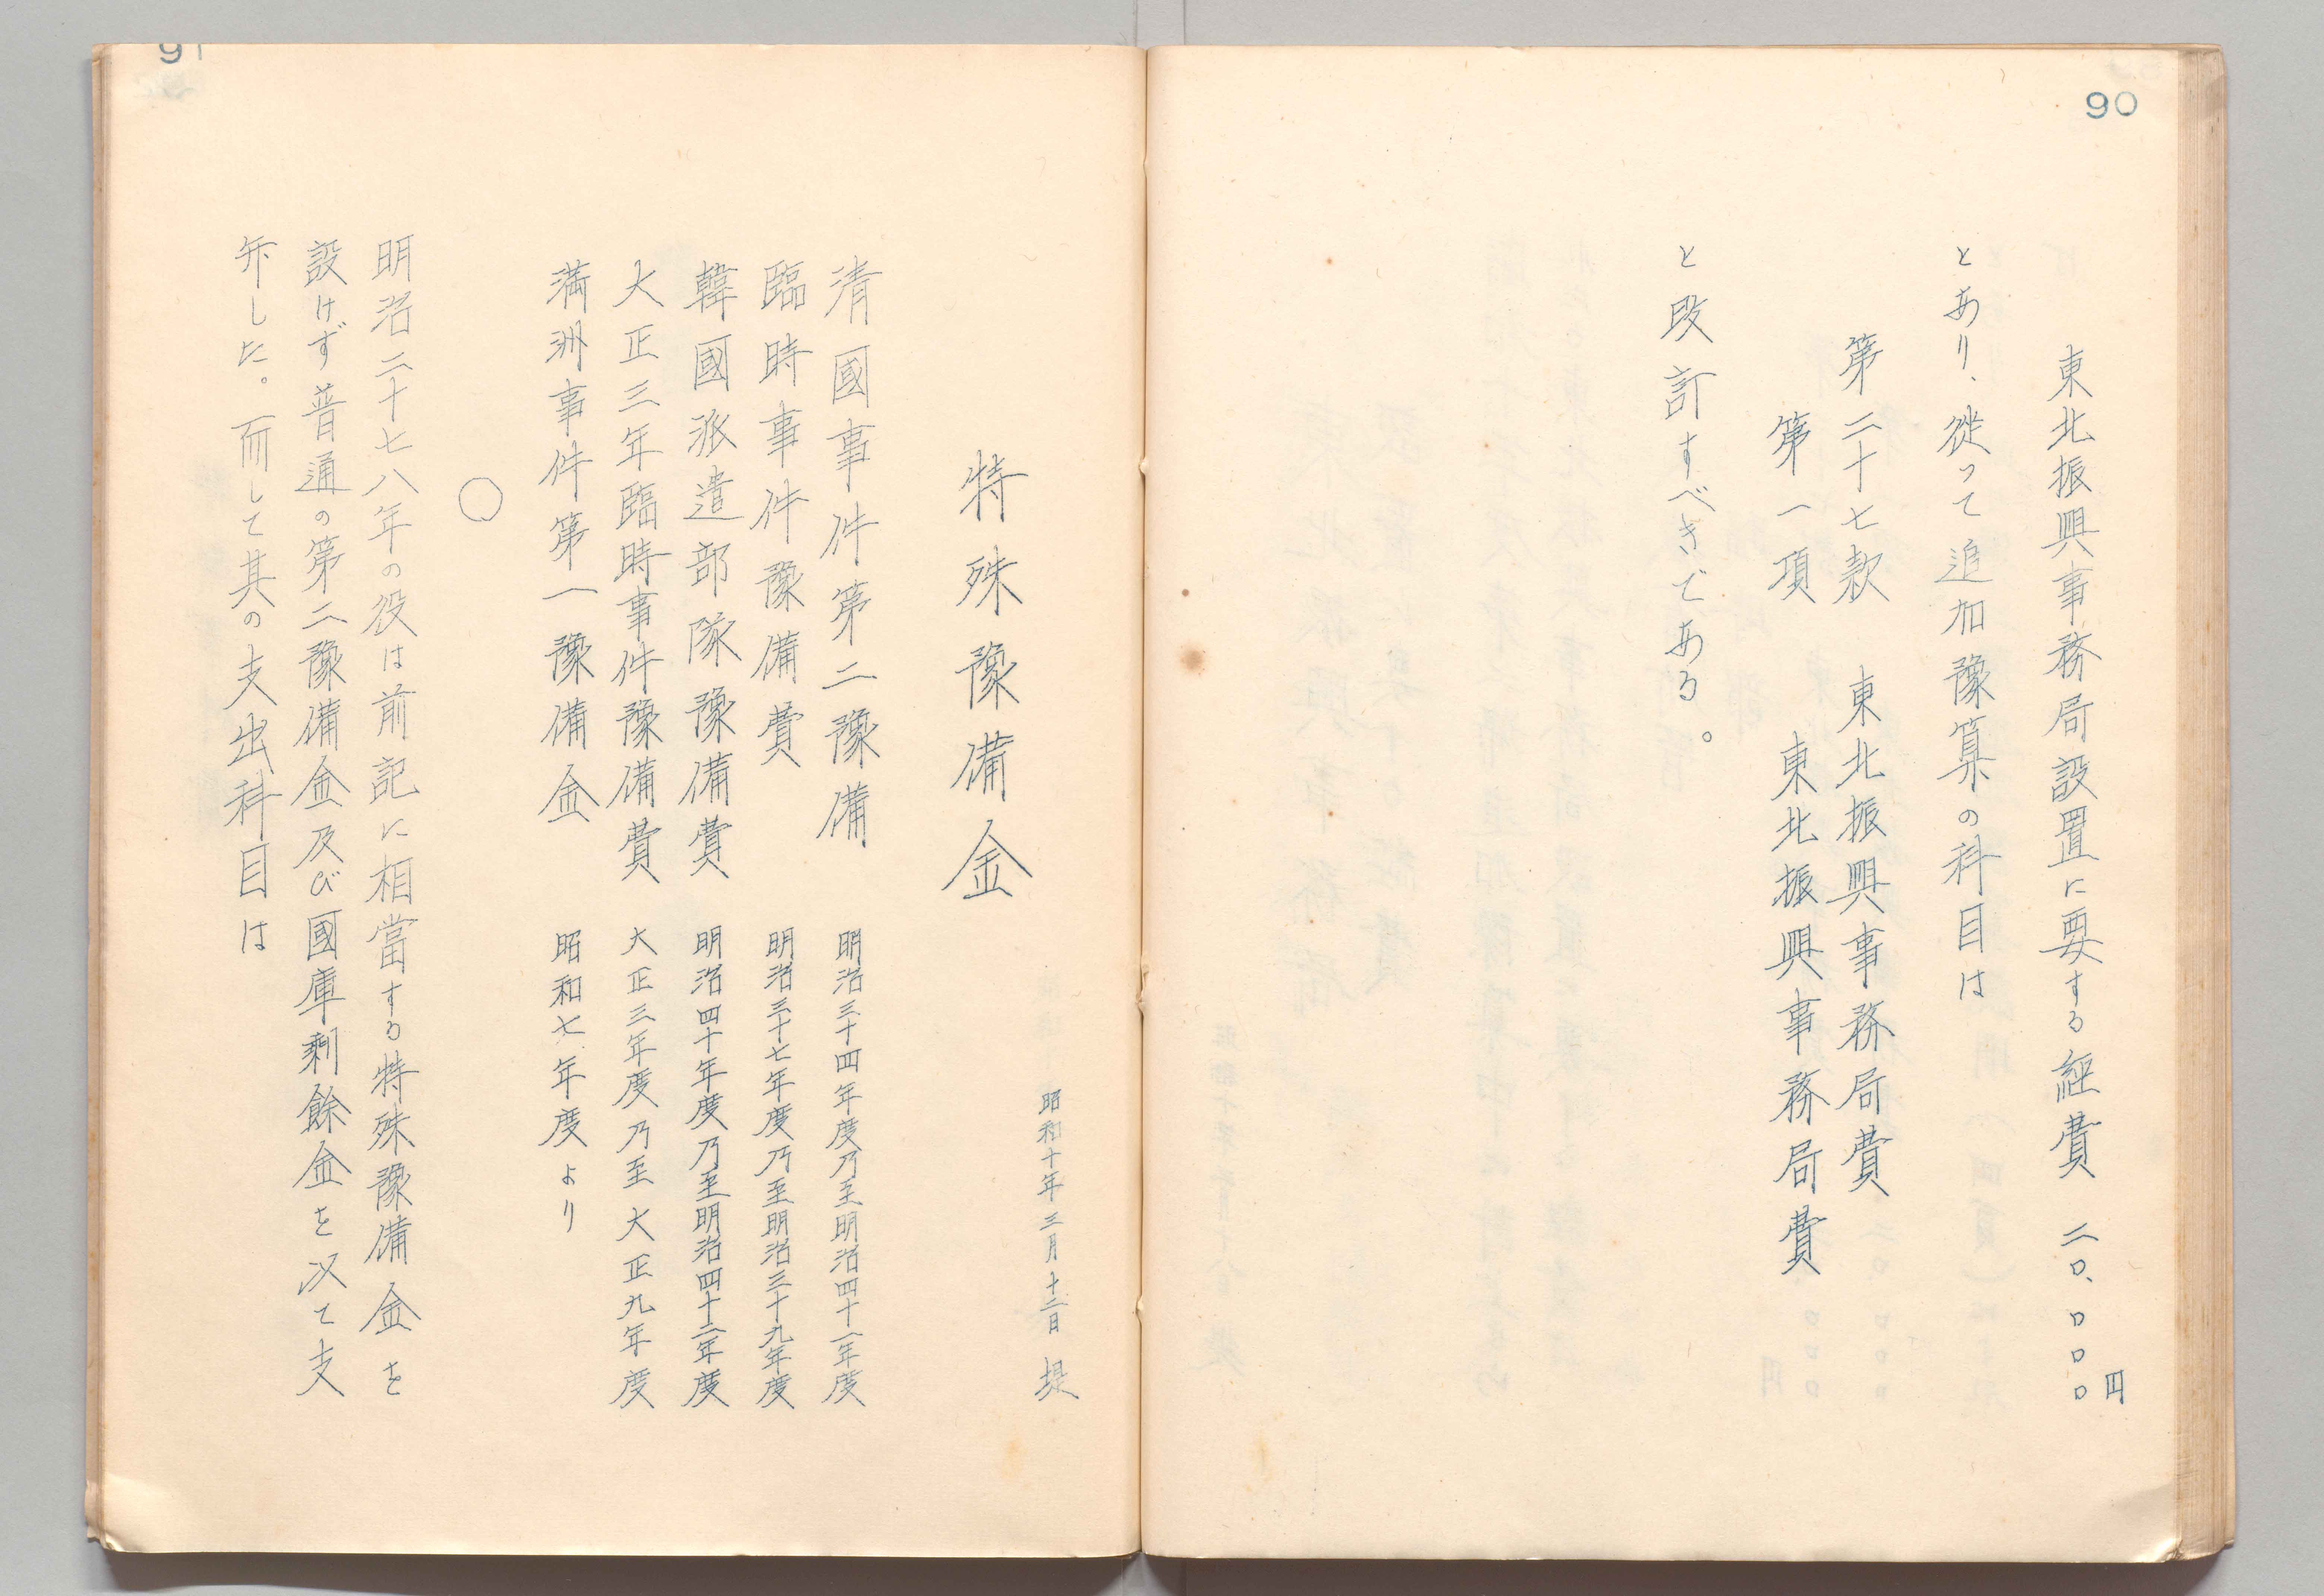 90
東北振興事務局設置に要する經費 二〇、〇〇〇円
とあり、從つて追加豫算の科目は
第二十七款 東北振興事務局費
第一項 東北振興事務局費
と改訂すべきである。
91
昭和十年三月十二日 堤
特殊豫備金
清國事件第二豫備 明治三十四年度乃至明治四十一年度
臨時事件豫備費 明治三十七年度乃至明治三十九年度
韓國派遣部隊豫備費 明治四十年度乃至明治四十二年度
大正三年臨時事件豫備費 大正三年度乃至大正九年度
満洲事件第一豫備金 昭和七年度より
○
明治二十七八年の役は前記に相當する特殊豫備金を
設けず普通の第二豫備金及び國庫剰餘金を以て支
弁した。而して其の支出科目は